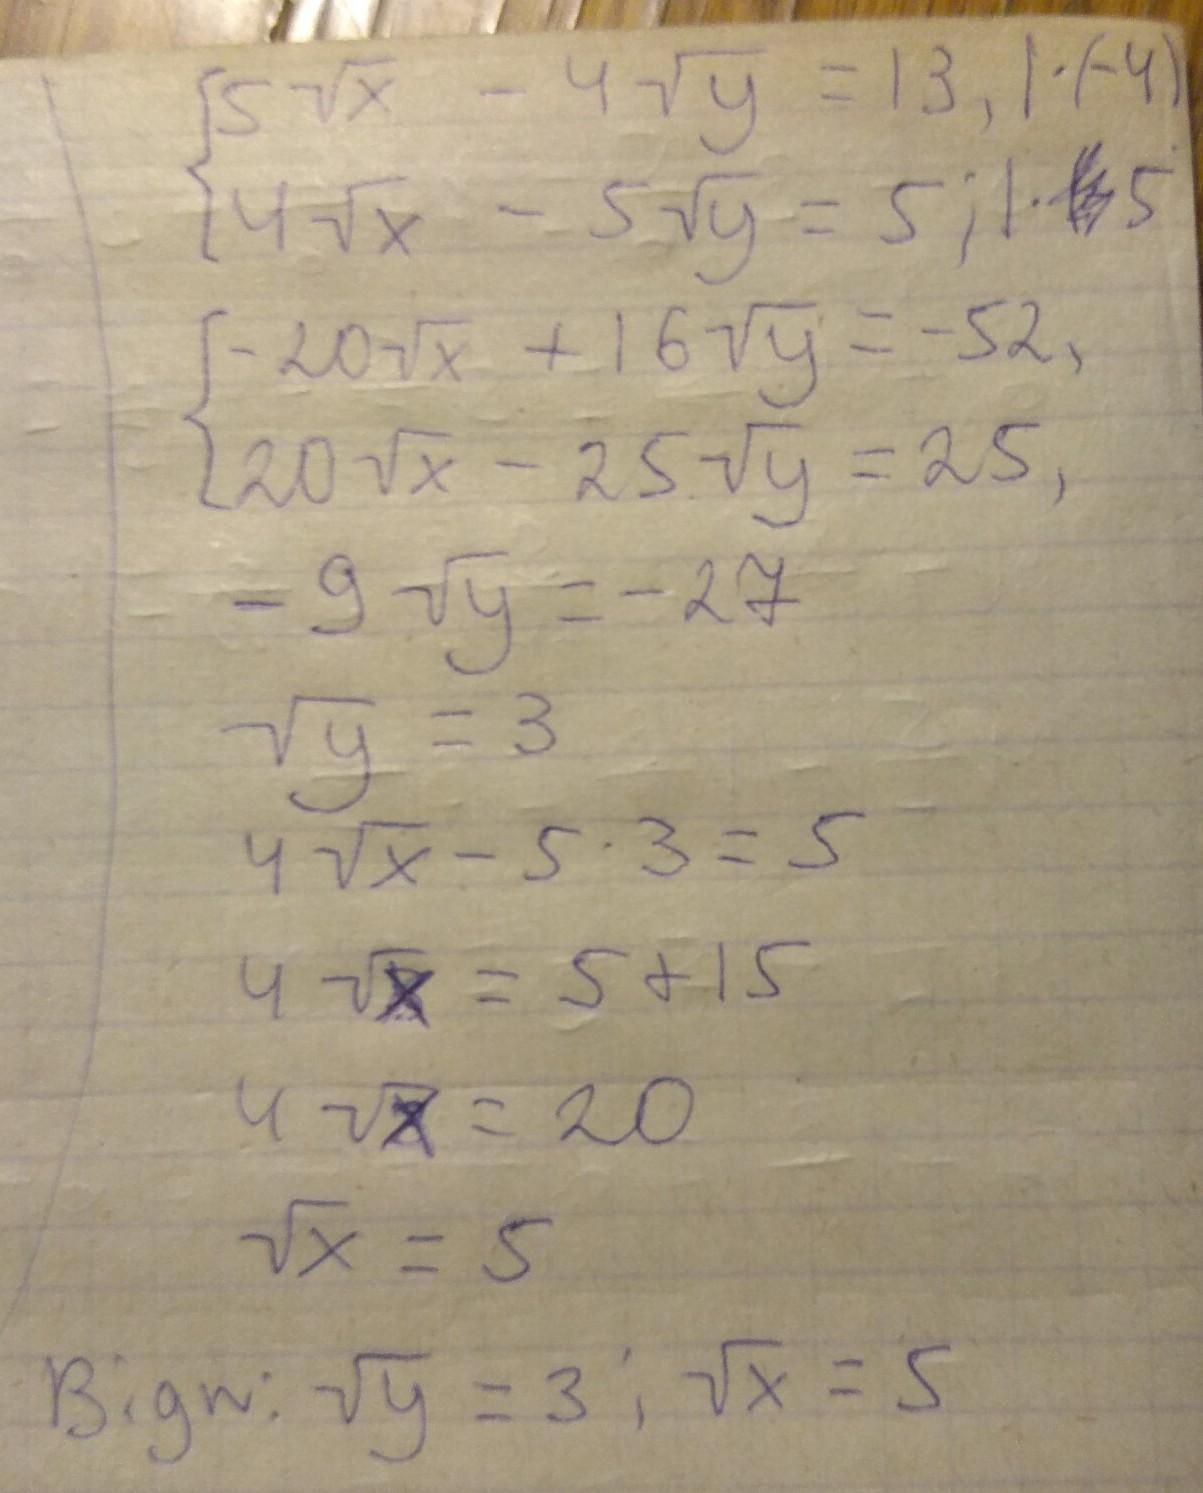 {5√x - 4√y = 13, |·(-4)
{4√x - 5√y = 5; |· 5
{-20√x + 16√y = -52,
{20√x - 25√y = 25,
-9√y = -27
√y = 3
4√x - 5·3 = 5
4√x = 5+15
4√x = 20
√x = 5
Відп: √y = 3; √x = 5